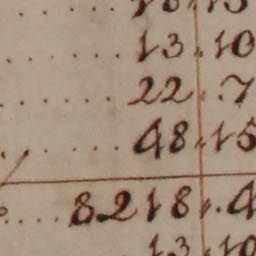 ..... 13.10
...... 22..7
...... 48.15
.... 8218..4
13.10